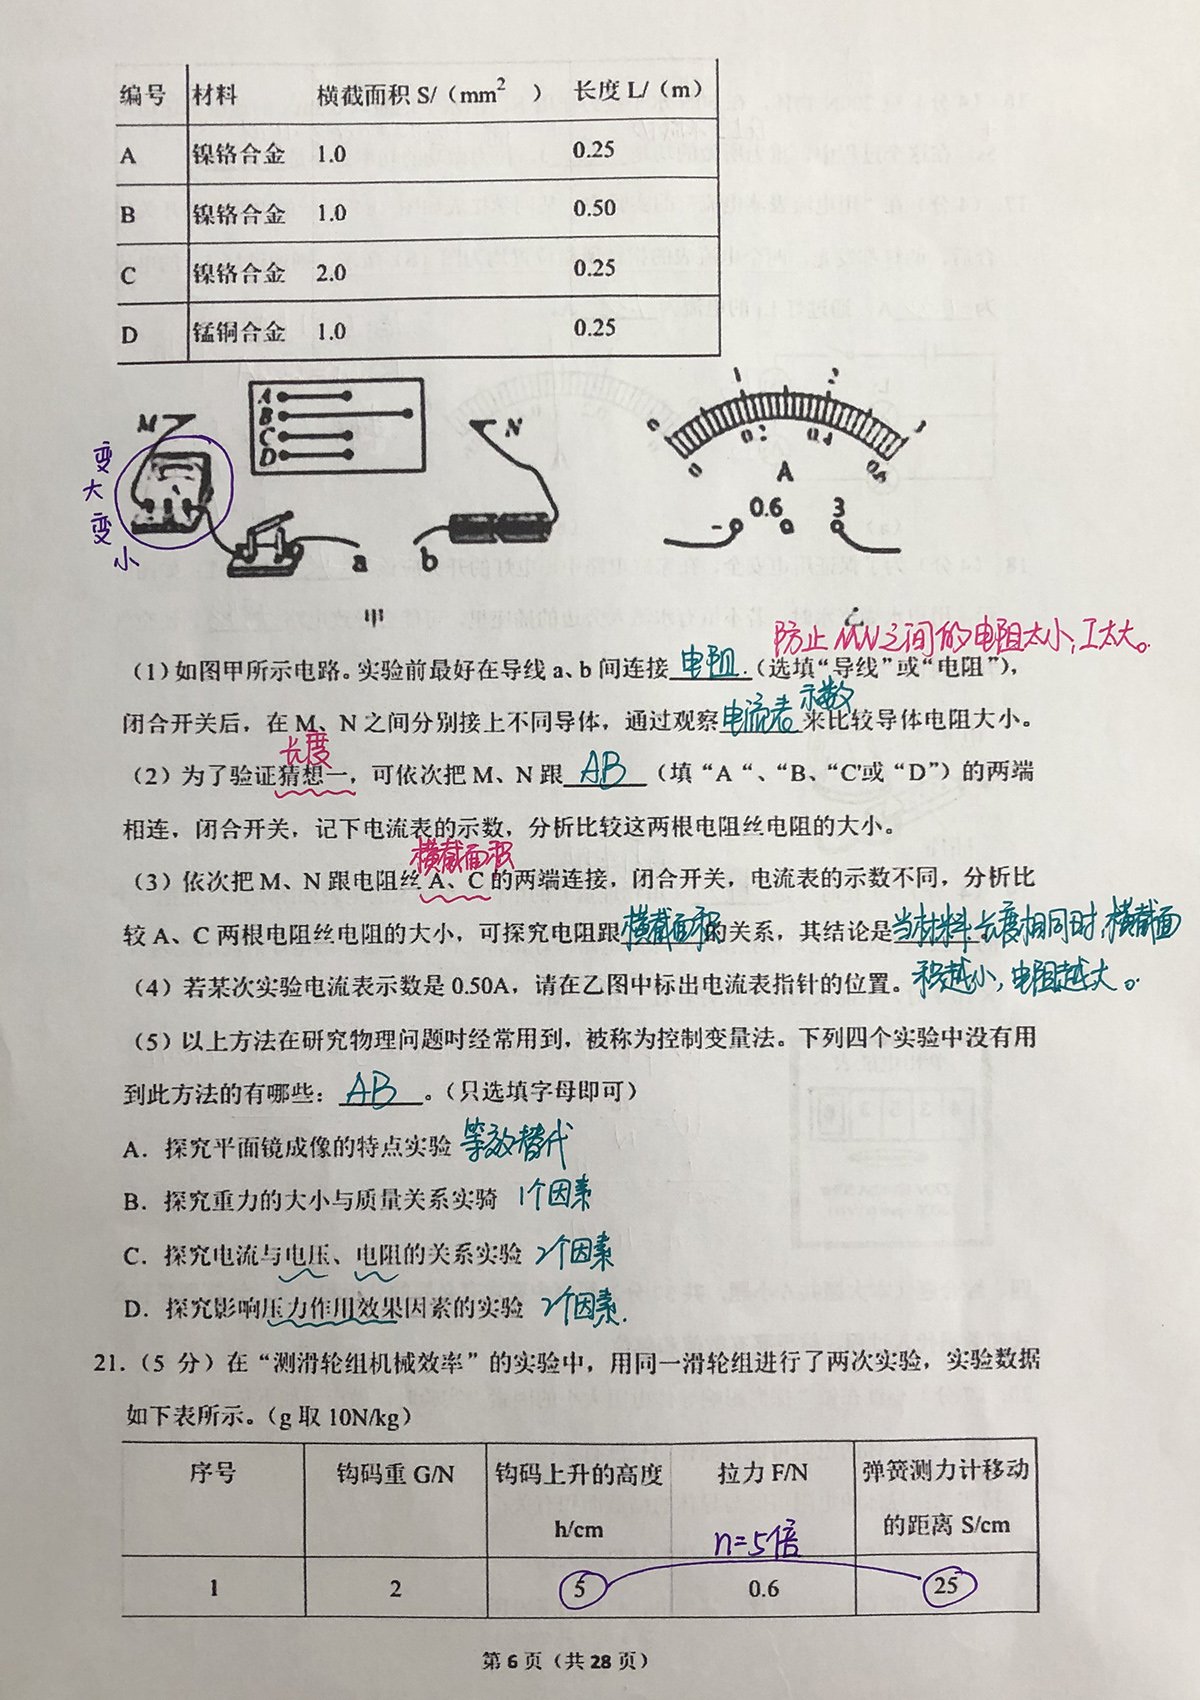 编号 材料 横截面积 S/（mm2 ） 长度 L/（m）
A 镍铬合金 1.0 0.25
B 镍铬合金 1.0 0.50
C 镍铬合金 2.0 0.25
D 锰铜合金 1.0 0.25
变大变小
M
A
B
C
D
N
a
b
甲
0 1 2 3
0 0.2 0.4 0.6
A
- 0.6 3
乙
防止MN之间的电阻太小，I太大。
（1）如图甲所示电路。实验前最好在导线 a、b 间连接电阻.（选填“导线”或“电阻”），
示数
闭合开关后，在 M、N 之间分别接上不同导体，通过观察电流表来比较导体电阻大小。
长度
（2）为了验证猜想一，可依次把 M、N 跟 AB （填“A“、“B、“C'或“D”）的两端
相连，闭合开关，记下电流表的示数，分析比较这两根电阻丝电阻的大小。
横截面积
（3）依次把 M、N 跟电阻丝 A、C 的两端连接，闭合开关，电流表的示数不同，分析比
较 A、C 两根电阻丝电阻的大小，可探究电阻跟横截面积的关系，其结论是当材料、长度相同时，横截面
积越小，电阻越大。
（4）若某次实验电流表示数是 0.50A，请在乙图中标出电流表指针的位置。
（5）以上方法在研究物理问题时经常用到，被称为控制变量法。下列四个实验中没有用
到此方法的有哪些： AB 。（只选填字母即可）
A．探究平面镜成像的特点实验 等效替代
B．探究重力的大小与质量关系实骑 1个因素
C．探究电流与电压、电阻的关系实验 2个因素
D．探究影响压力作用效果因素的实验 2个因素.
21.（5 分）在“测滑轮组机械效率”的实验中，用同一滑轮组进行了两次实验，实验数据
如下表所示。（g 取 10N/kg）
序号 钩码重 G/N 钩码上升的高度 h/cm 拉力 F/N 弹簧测力计移动的距离 S/cm
n=5倍
1 2 5 0.6 25
第 6 页（共 28 页）